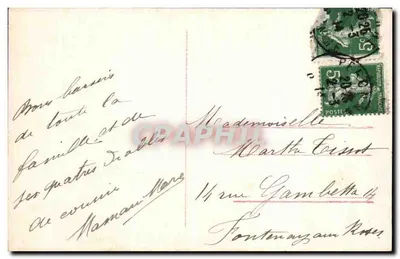 Bons baisers
de toute la
famille et de
ses quatres diables
de cousins
Maman Marie
Mademoiselle
Marthe Tissot
14 rue Gambetta 14
Fontenay aux Roses
5c
5c
POSTES
CPAPHIL